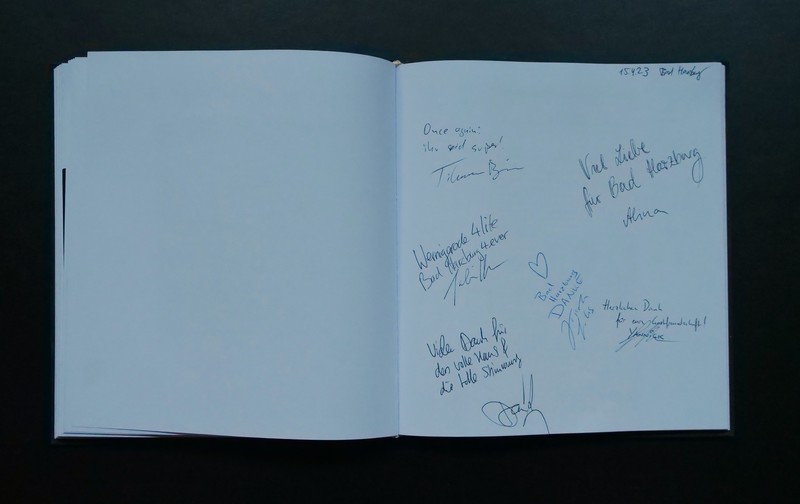 15.4.23 Bad Harzburg
Once again:
ihr seid super!
Viel Liebe
für Bad Harzburg
Alina
Wernigerode 4 life
Bad Harzburg 4ever
Bad
Harzburg
DANKE
Herzlichen Dank
für
Vielen Dank für
das volle Haus &
die tolle Stimmung
David